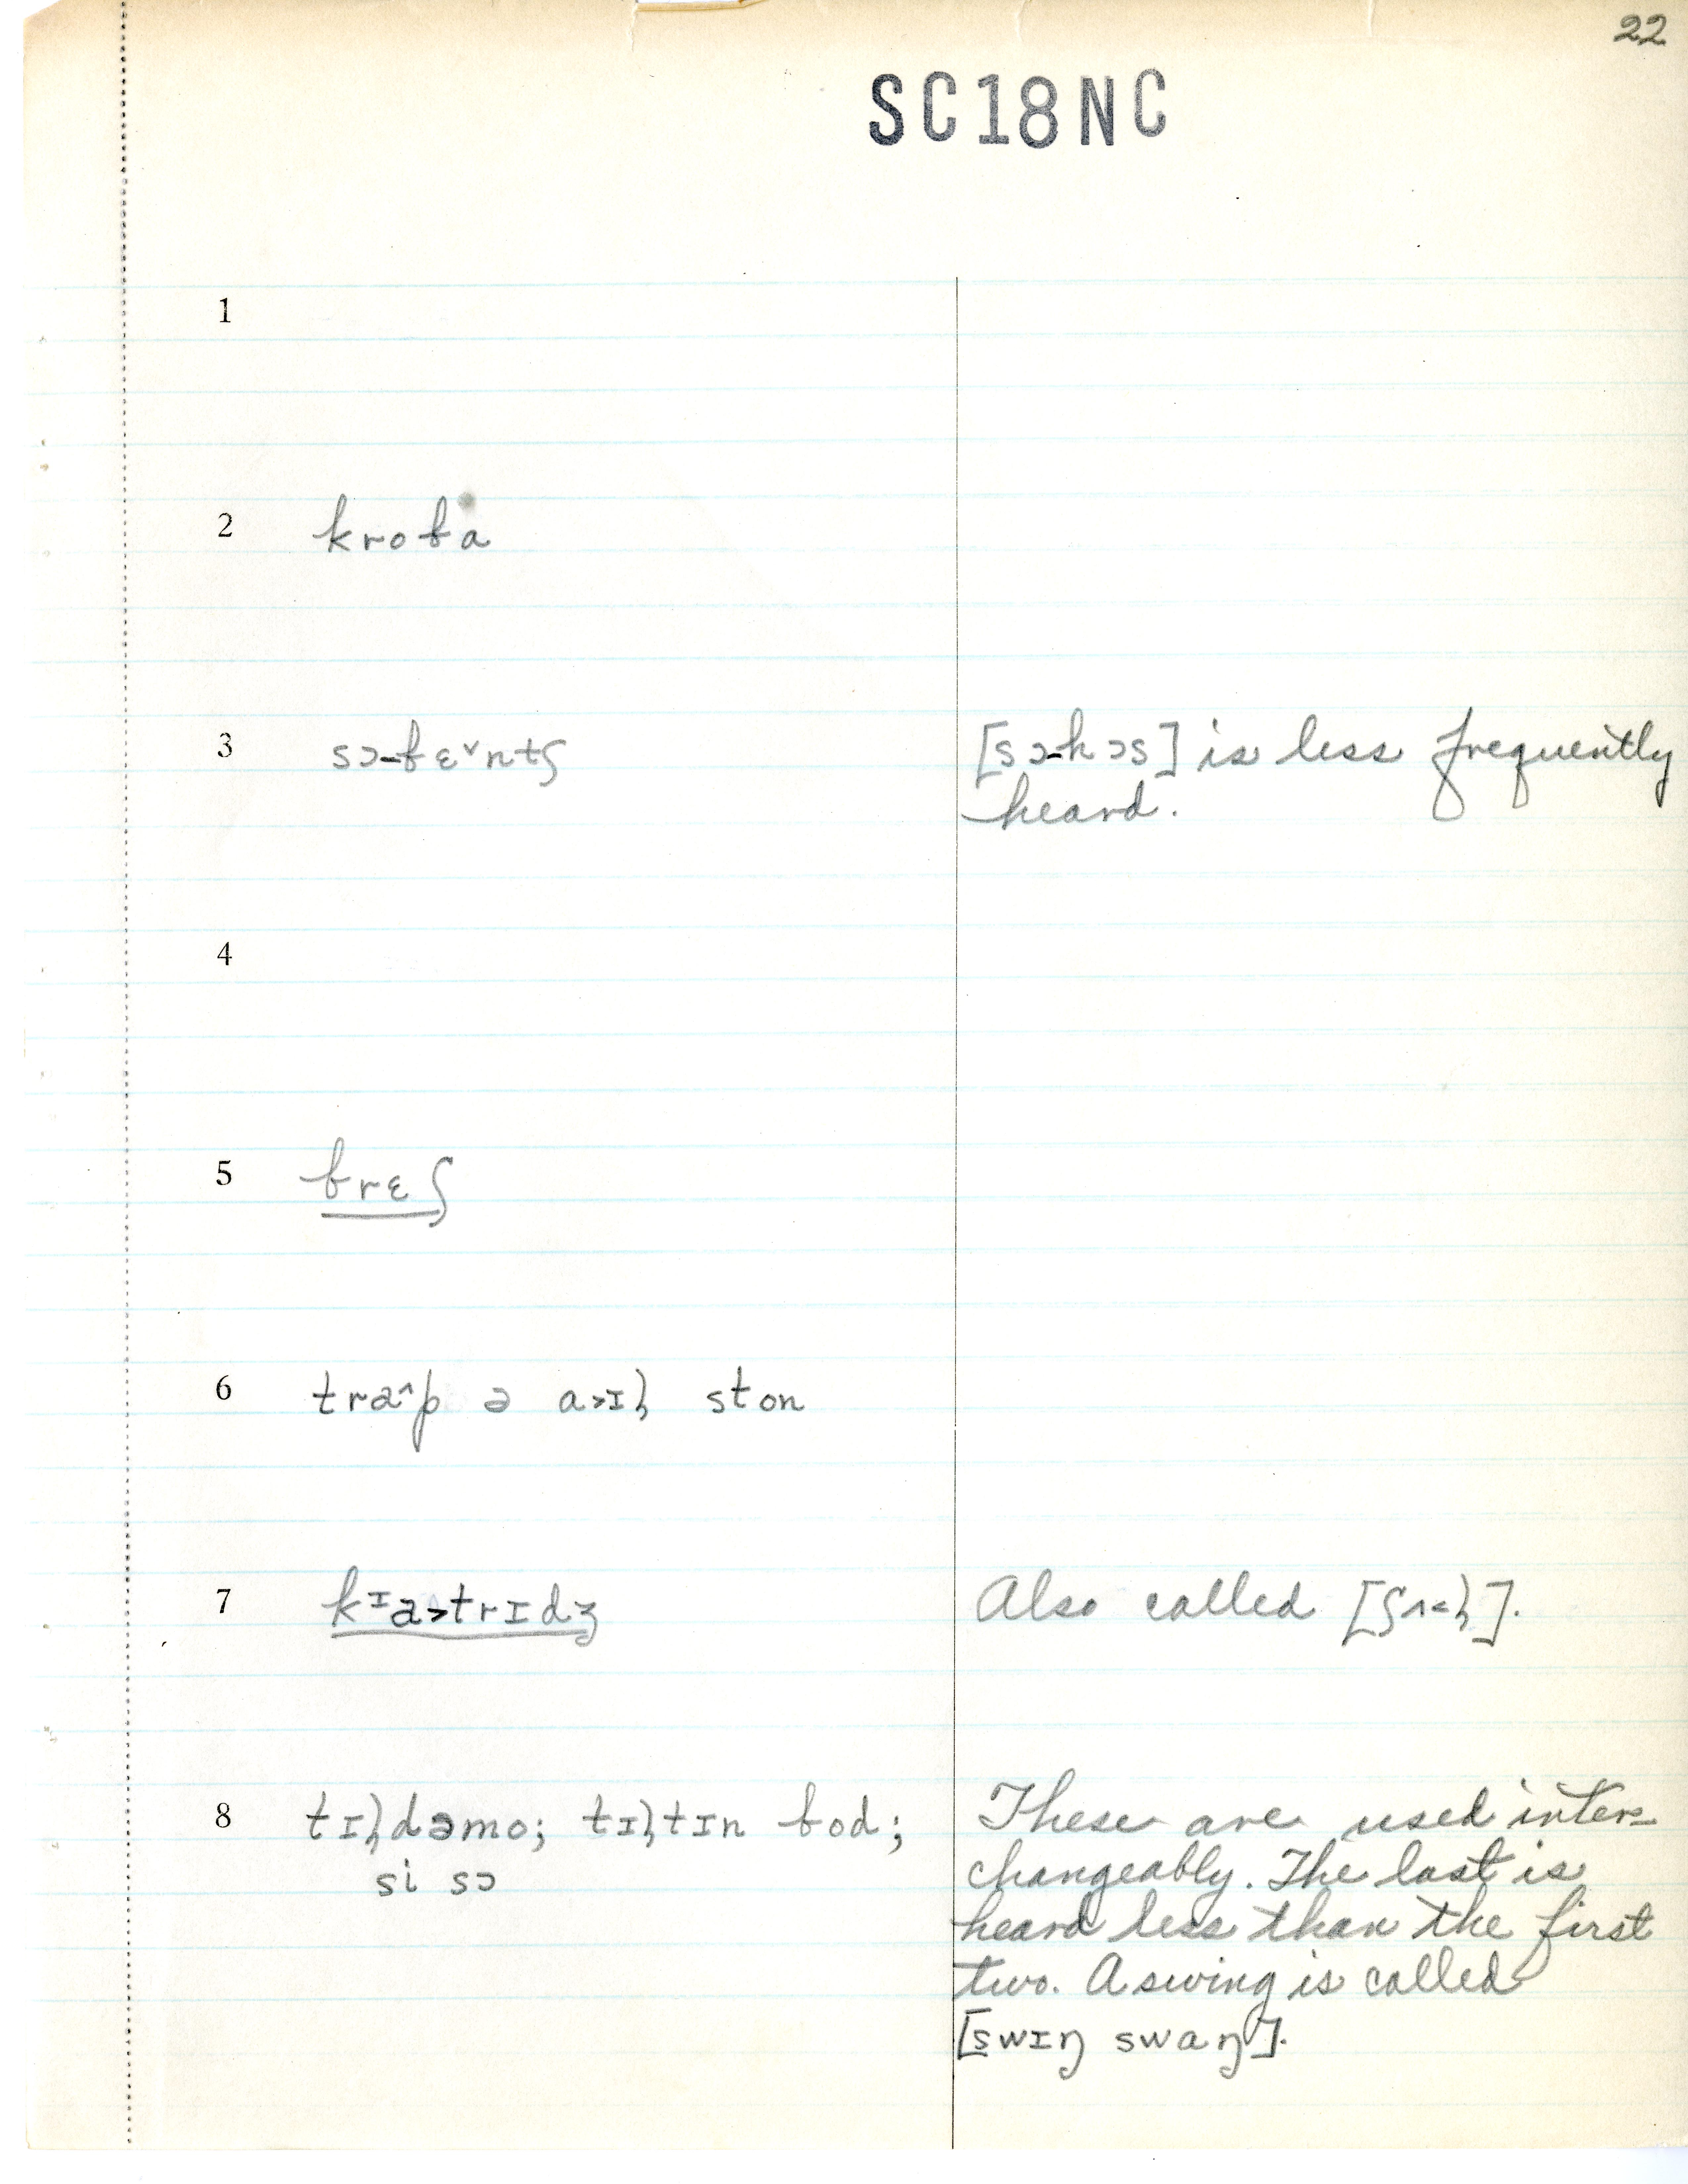 22
SC18NC
1
2 kroba
3 sɔ-bɛ˅ntʃ [sɔ-hɔs] is less frequently
heard.
4
5 brɛʃ
6 tra^p ə a>ɪl̡ ston
7 kɪa>trɪdʒ Also called [ʃʌ<l̡].
8 tɪl̡dəmo; tɪl̡tɪn bod; These are used inter-
si sɔ changeably. The last is
heard less than the first
two. A swing is called
[swɪŋ swaŋ].